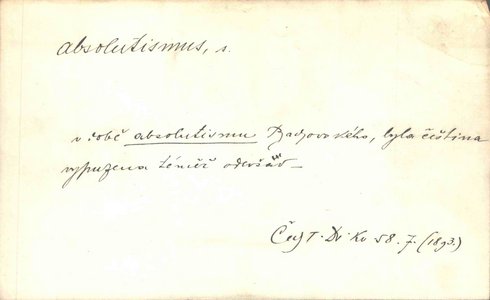 absolutismus, s.
v době absolutismu Bachovského, byla čeština
vypuzena téměř odevšad –
Dr. Kv 58. 7. (1893.)